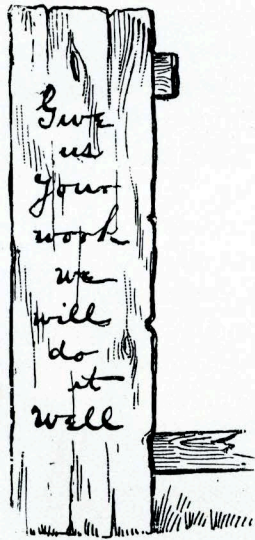 Give
us
your
work
we
will
do
it
well